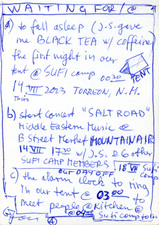 WAITING FOR / @
a) to fall asleep (J.S. gave
me BLACK TEA w/ caffeine
the first night in our
tent @ SUFI camp 00³⁰
TENT
14 VII 2013 TORREON, N.M.
b) short concert "SALT ROAD"
Middle Eastern Music @
B Street Market MOUNTAINAIR
14 VII 17⁰⁰ w/ J.S. & 6 other
SUFI CAMP MEMBERS
OUR DAY OFF 18 VII Sufi camp
c) the alarm clock to ring
in our tent @ 03⁰⁰ to
meet people @ kitchen @
Sufi camp to